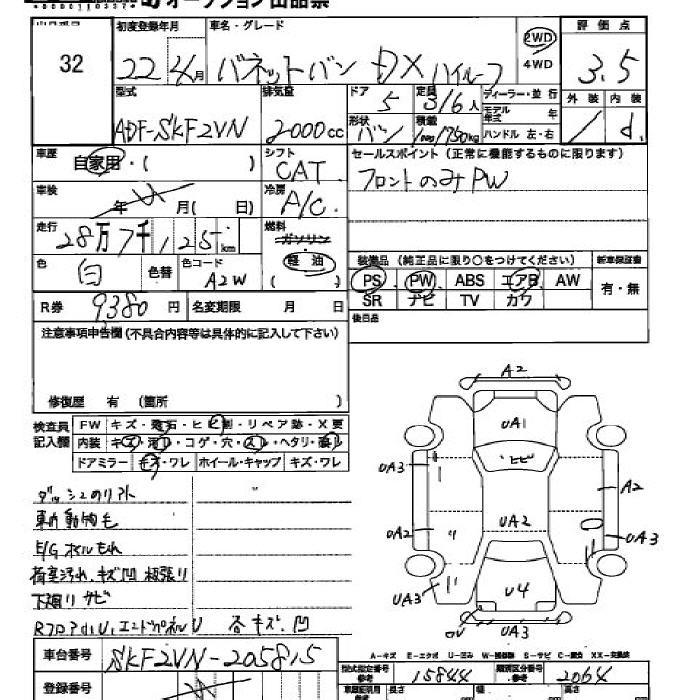 オークション出品票
32
初度登録年月
22年4月
車名・グレード
バネットバン DX ハイルーフ
2WD
4WD
評価点
3.5
型式
ADF-SKF2VN
排気量
2000cc
ドア
5
定員
3/6人
ディーラー・並行
モデル年式 年
ハンドル 左・右
形状
バン
積載
kg
外装
内装
d
車歴
自家用・( )
シフト
CAT
セールスポイント(正常に機能するものに限ります)
フロントのみPW
車検
年 月( 日)
冷房
A/C
走行
28万7千125km
燃料
ガソリン
軽油
( )
色
白
色替
色コード
A2W
装備品 (純正品に限り○をつけてください)
新車保証書
PS PW ABS エアB AW
SR ナビ TV カワ
有・無
R券 9380円
名変期限 月 日
後日品
注意事項申告欄(不具合内容等は具体的に記入して下さい)
修復歴 有 (箇所 )
検査員記入欄
FW キズ・飛石・ヒビ割・リペア跡・X要
内装 キズ・汚れ・コゲ・穴・スレ・ヘタリ・臭い
ドアミラー キズ・ワレ ホイール・キャップ キズ・ワレ
A2
UA1
ヒビ
UA3
A2
UA2
UA2
UA3
UA3
U4
UV
UA3
ダッシュのリアト
車内動物毛
E/Gオイルもれ
荷室汚れ、キズ凹 板張り
下廻りサビ
各キズ、凹
A-キズ E-エクボ U-凹み W-補修跡 S-サビ C-腐食 XX-交換済
車台番号
SKF2VN-205815
型式指定番号
参考
15844
類別区分番号
参考
2064
登録番号
長さ
幅
高さ